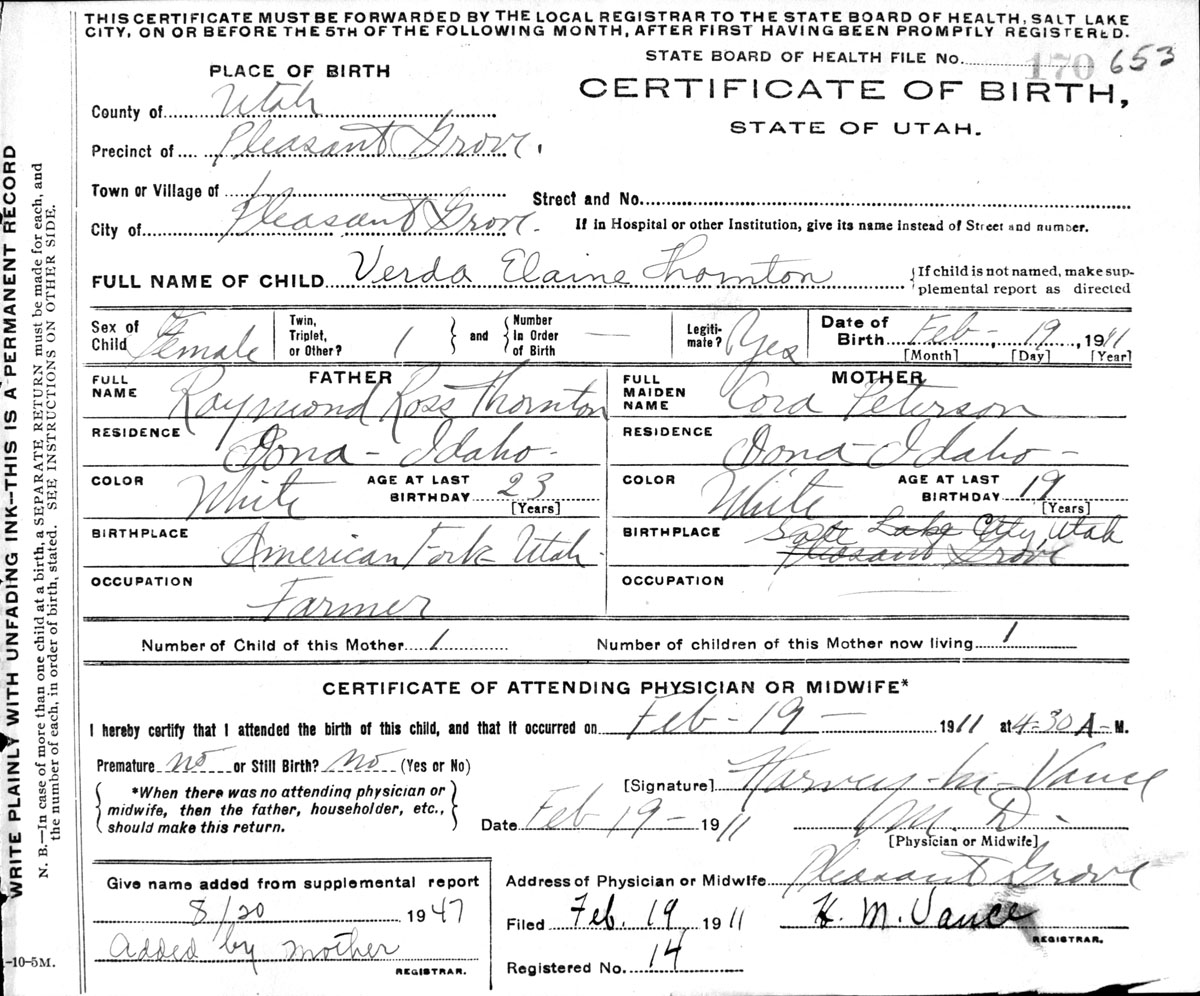 THIS CERTIFICATE MUST BE FORWARDED BY THE LOCAL REGISTRAR TO THE STATE BOARD OF HEALTH, SALT LAKE
CITY, ON OR BEFORE THE 5TH OF THE FOLLOWING MONTH, AFTER FIRST HAVING BEEN PROMPTLY REGISTERED.
STATE BOARD OF HEALTH FILE No. 170 653
PLACE OF BIRTH
CERTIFICATE OF BIRTH,
STATE OF UTAH.
County of Utah
Precinct of Pleasant Grove.
Town or Village of
Street and No.
City of Pleasant Grove.
If in Hospital or other Institution, give its name instead of Street and number.
FULL NAME OF CHILD Verda Elaine Thornton
{If child is not named, make sup-
plemental report as directed
Sex of Child Female
Twin, Triplet, or Other? 1 } and { Number In Order of Birth —
Legiti-mate? Yes
Date of Birth Feb - 19, 1911
[Month] [Day] [Year]
FATHER
FULL NAME Raymond Ross Thornton
RESIDENCE Iona - Idaho -
COLOR White AGE AT LAST BIRTHDAY 23
[Years]
BIRTHPLACE American Fork Utah -
OCCUPATION Farmer
MOTHER
FULL MAIDEN NAME Cora Peterson
RESIDENCE Iona - Idaho -
COLOR White AGE AT LAST BIRTHDAY 19
[Years]
BIRTHPLACE Salt Lake City, Utah
Pleasant Grove
OCCUPATION
Number of Child of this Mother 1
Number of children of this Mother now living 1
CERTIFICATE OF ATTENDING PHYSICIAN OR MIDWIFE*
I hereby certify that I attended the birth of this child, and that it occurred on Feb - 19 - 1911 at 4-30 A - M.
Premature no or Still Birth? no (Yes or No)
{ *When there was no attending physician or
midwife, then the father, householder, etc.,
should make this return. }
[Signature] Harvey - M - Vance
Date Feb 19 - 1911
M. D.
[Physician or Midwife]
Address of Physician or Midwife Pleasant Grove
Filed Feb. 19 1911 H. M. Vance
REGISTRAR.
Registered No. 14
Give name added from supplemental report
8/20 1947
Added by mother
REGISTRAR.
-10-5M.
WRITE PLAINLY WITH UNFADING INK--THIS IS A PERMANENT RECORD
N. B.—In case of more than one child at a birth, a SEPARATE RETURN must be made for each, and
the number of each, in order of birth, stated. SEE INSTRUCTIONS ON OTHER SIDE.